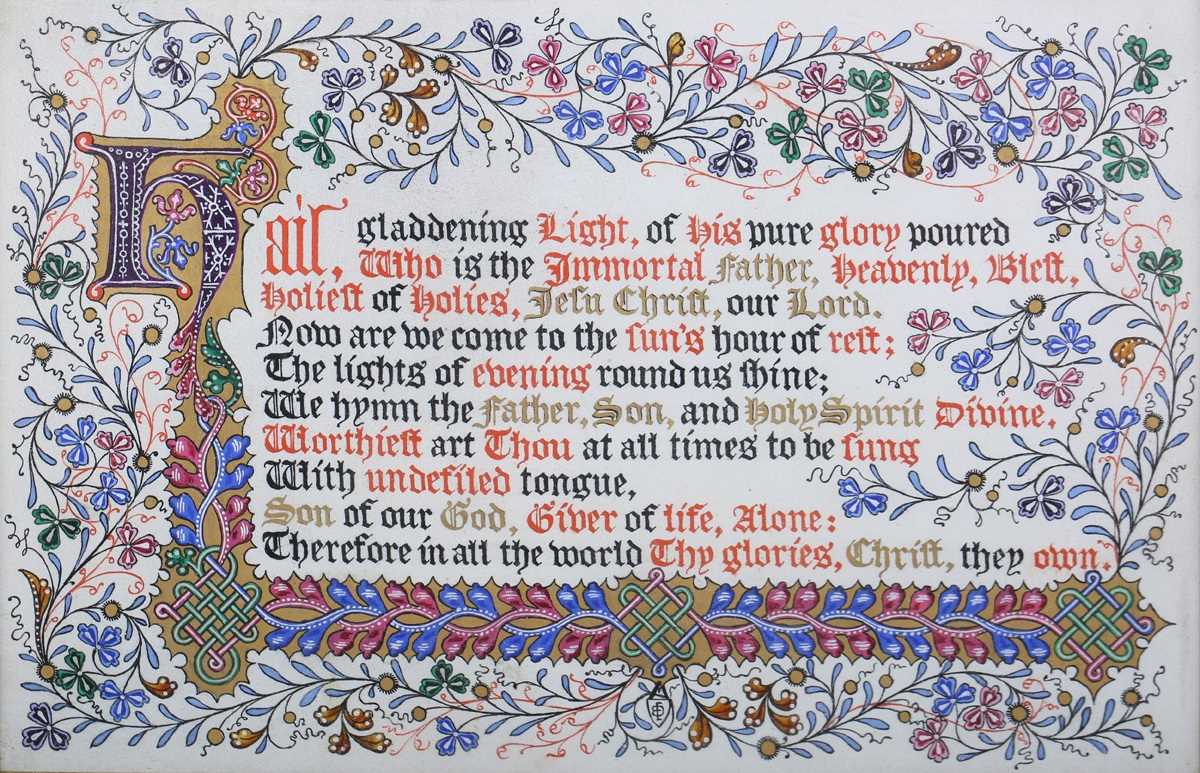 Hail, gladdening Light, of His pure glory poured
Who is the Immortal Father, Heavenly, Blest,
Holiest of Holies, Jesu Christ, our Lord.
Now are we come to the sun's hour of rest;
The lights of evening round us shine;
We hymn the Father, Son, and Holy Spirit Divine.
Worthiest art Thou at all times to be sung
With undefiled tongue,
Son of our God, Giver of life, Alone:
Therefore in all the world Thy glories, Christ, they own.